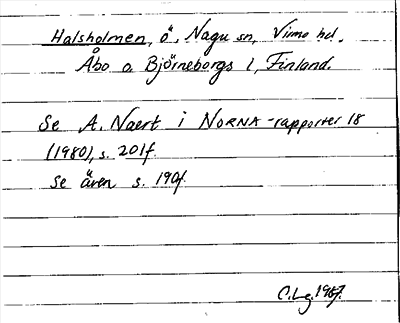 Halsholmen, ö, Nagu sn, Virmo hd,
Åbo o Björneborgs l, Finland.
Se A. Naert i NORNA-rapporter 18
(1980), s. 201f.
Se även s. 190f.
C.Lg. 1987.